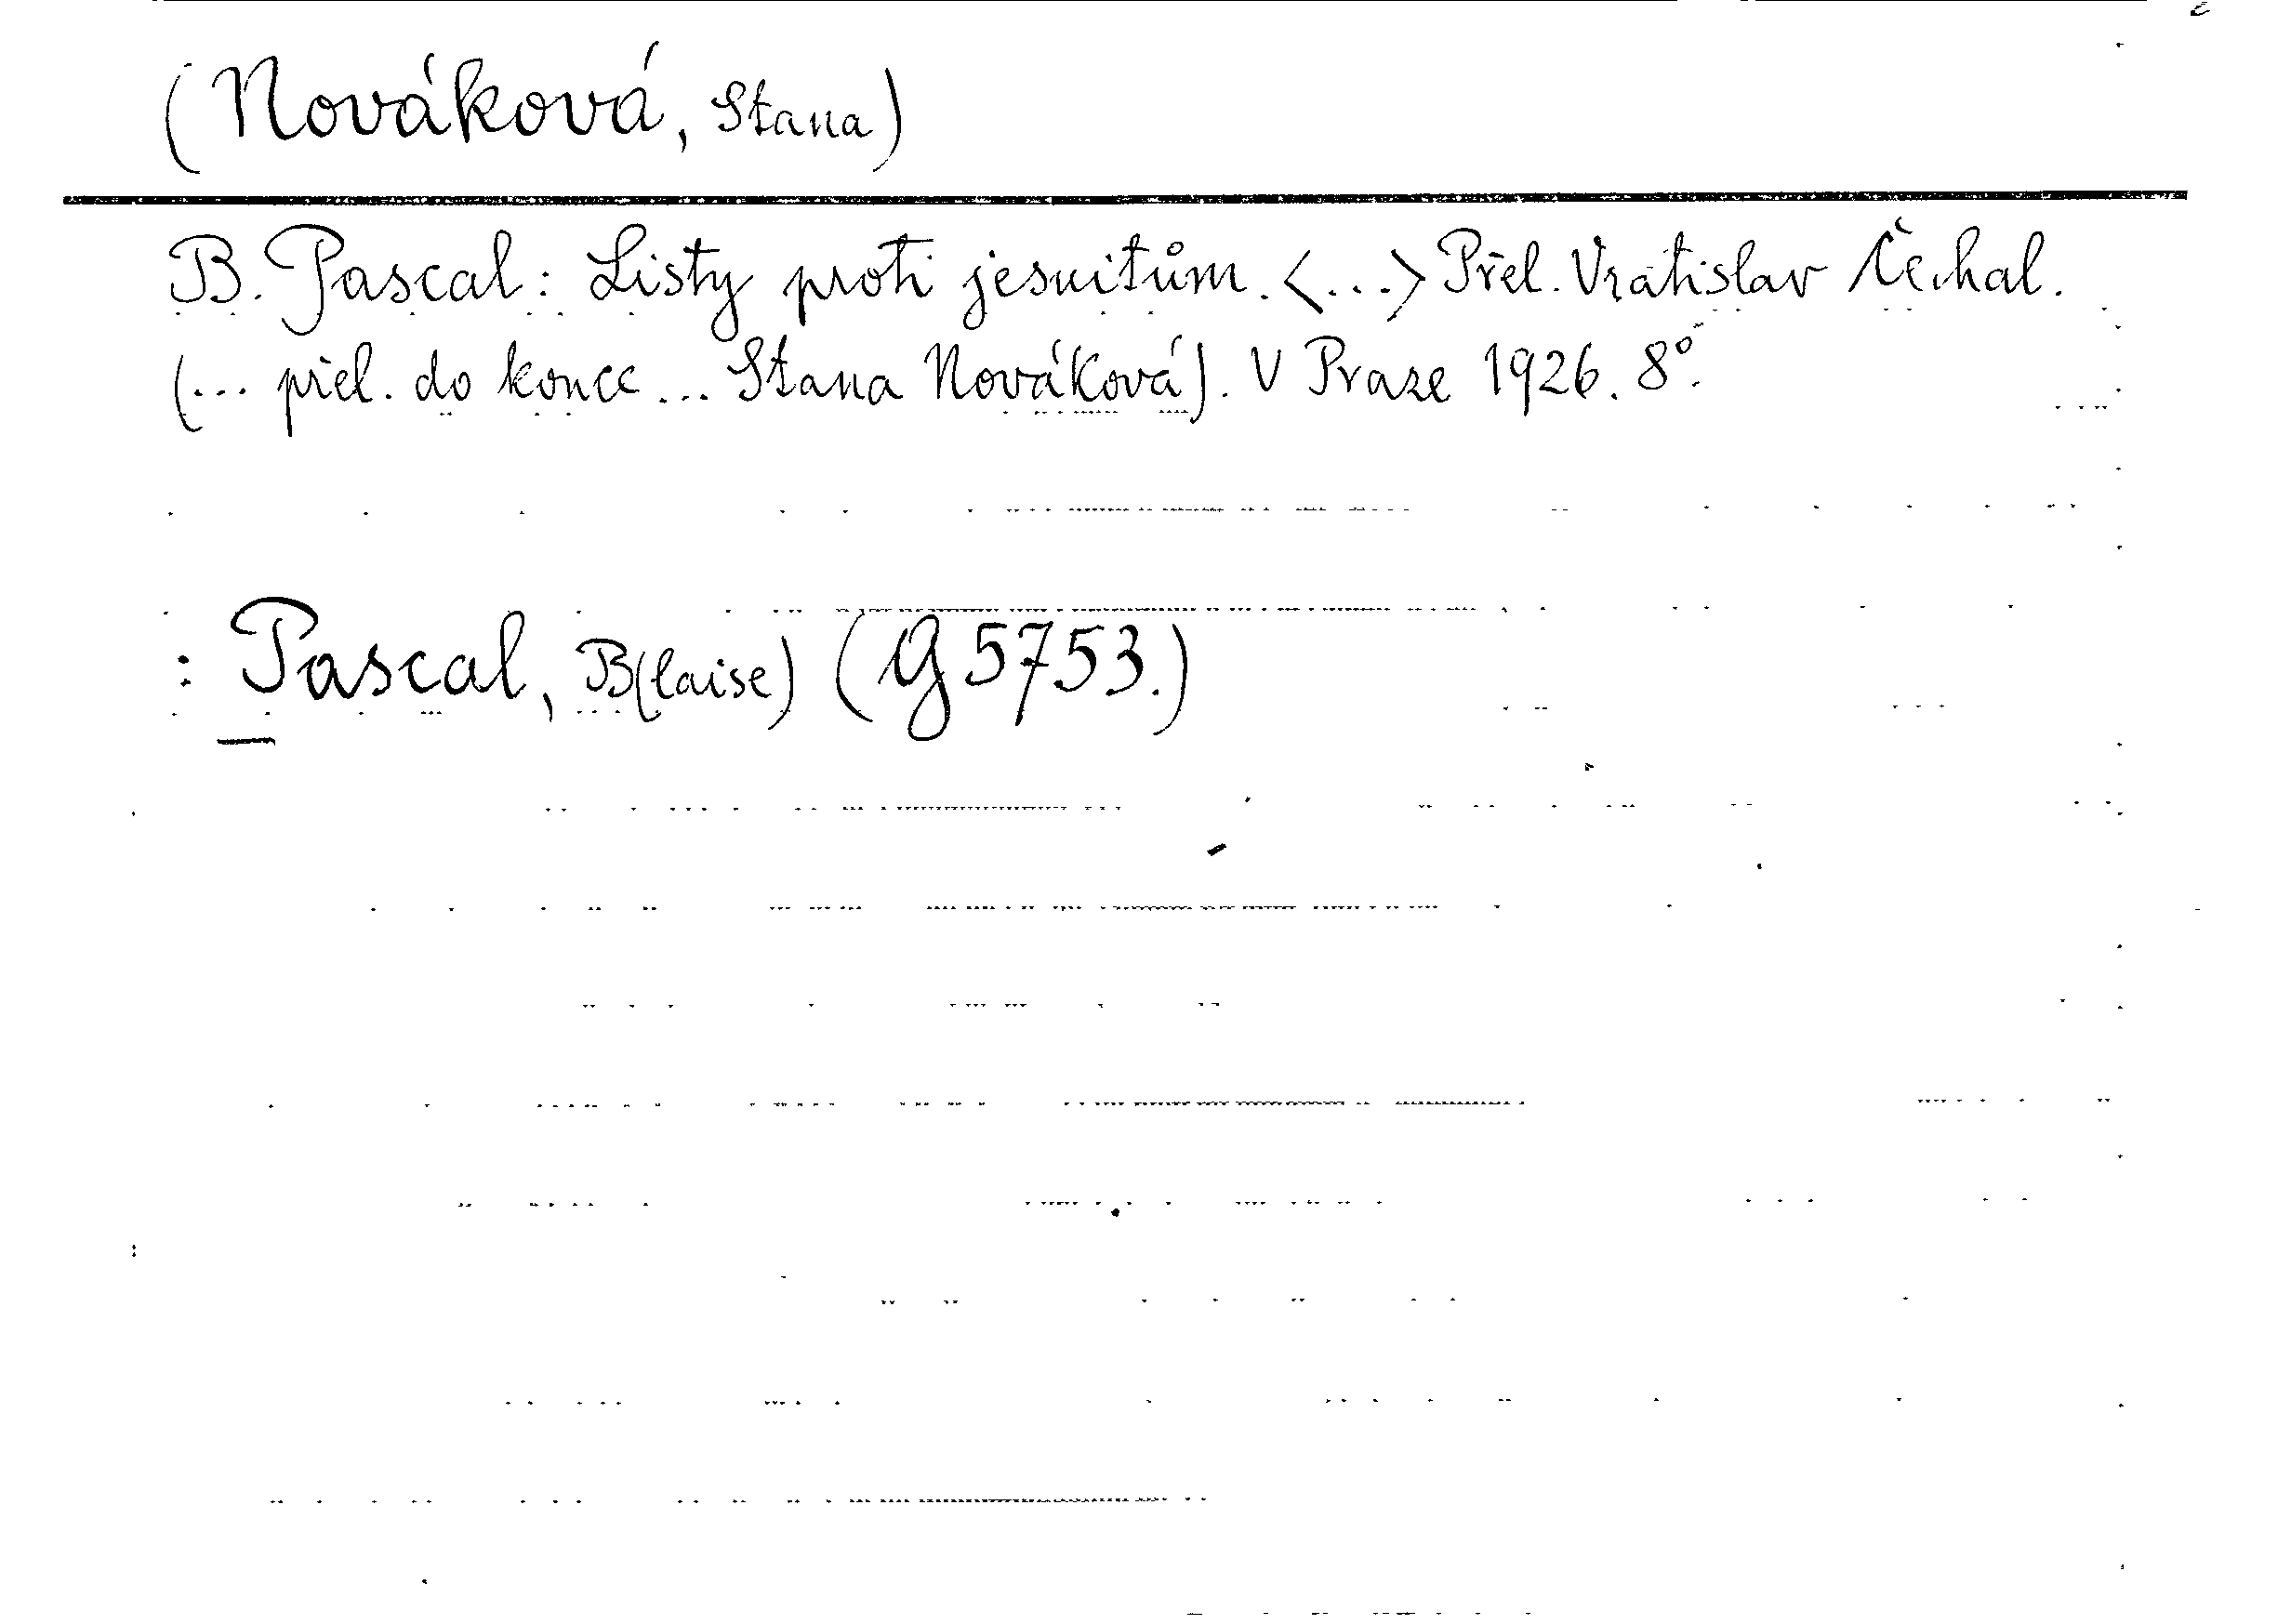 (Nováková, Stana)
B. Pascal: Listy proti jesuitům. <...> Přel. Vratislav Čechal.
(... přel. do konce ... Stana Nováková). V Praze 1926. 8°.
: Pascal, B(laise) (G 5753.)